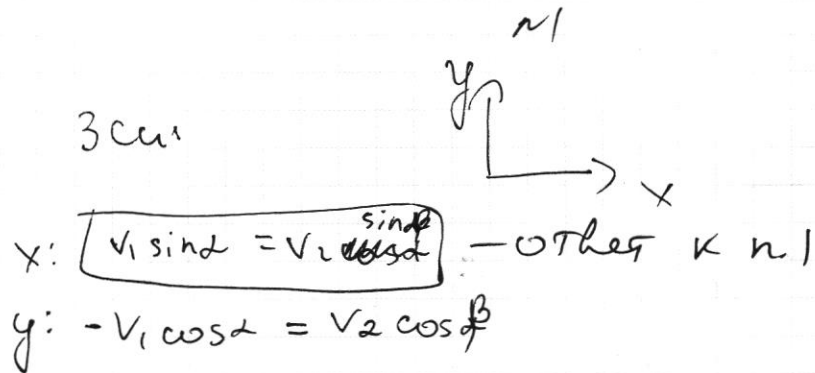 №1
y
x
ЗСИ:
x: v₁ sinα = v₂ sinβ – ответ к п.1
y: -v₁ cosα = v₂ cosβ